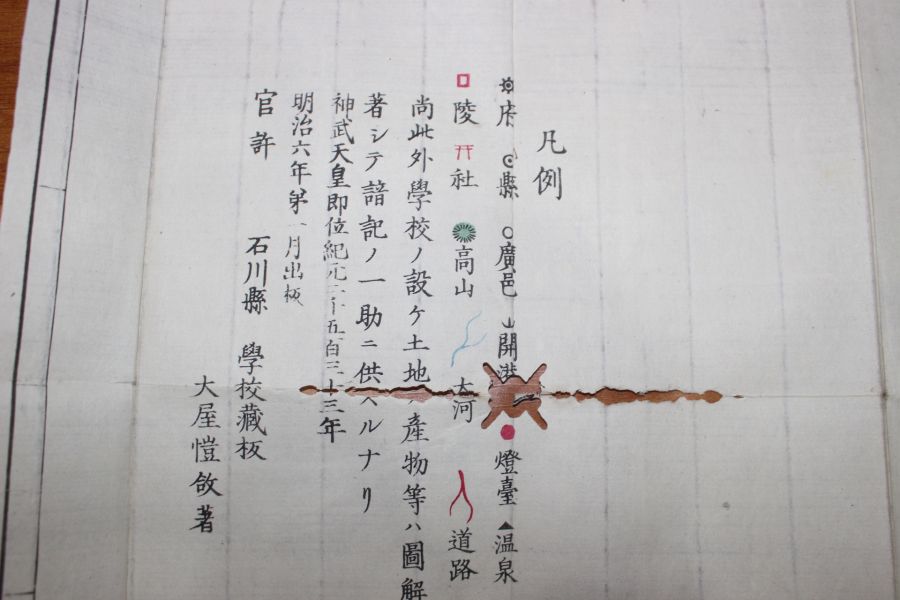 凡例
府 縣 廣邑 開港 燈臺 温泉
陵 社 高山 大河 道路
尚此外學校ノ設ケ土地ノ産物等ハ圖解
著シテ諳記ノ一助ニ供ヘルナリ
神武天皇即位紀元二千五百三十三年
明治六年第一月出板
官許 石川縣 學校藏板
大屋愷敆著